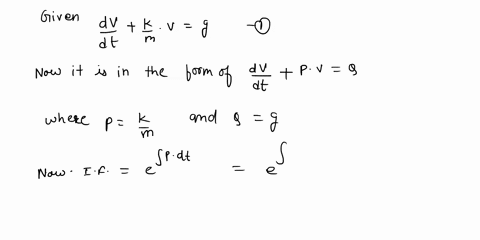 Given dV/dt + k/m . v = g —①
Now it is in the form of dV/dt + P. v = Q
where P = k/m and Q = g
Now. I.F. = e^∫P.dt = e^∫